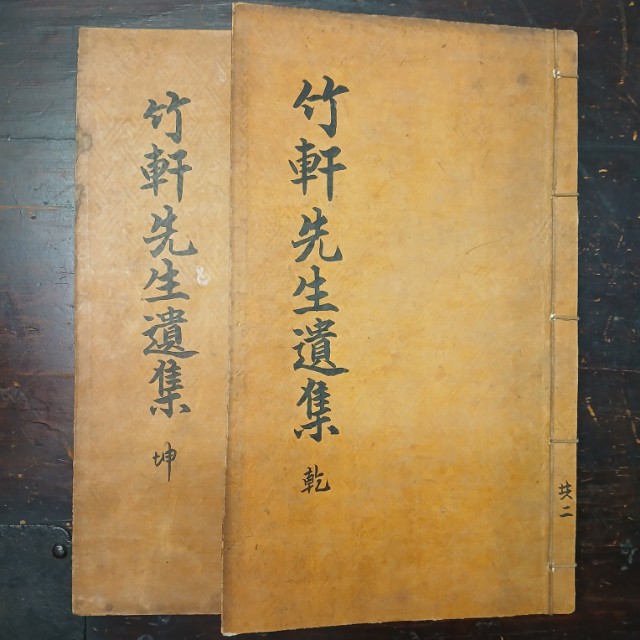 竹軒先生遺集
乾
共二
竹軒先生遺集
坤